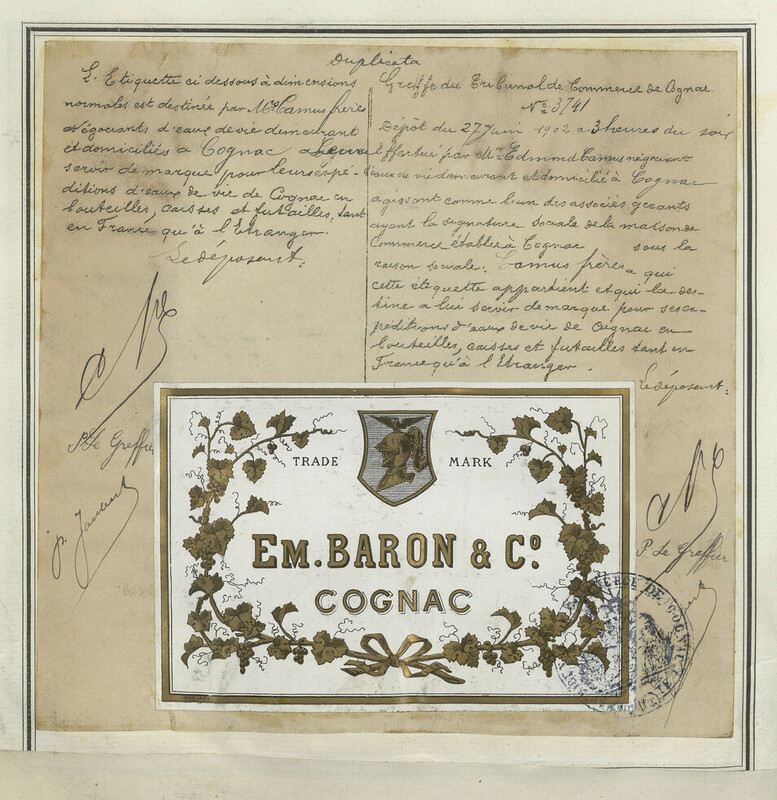 Duplicata
L'Etiquette ci dessous à dimensions
normales est destinée par Mrs Camus frères
négociants d'eaux de vie demeurant
et domiciliés à Cognac a leur
servir de marque pour leurs expé-
ditions d'eaux de vie de Cognac en
bouteilles, caisses et futailles, tant
en France qu'à l'Etranger.
Le déposant:
P. Le Greffier
p. Jaubert
Greffe du Tribunal de Commerce de Cognac
No 3741
Dépôt du 27 Juin 1902 a 3 heures du soir
effectué par Mr Edmond Camus négociant
d'eaux de vie demeurant et domicilié à Cognac
agissant comme l'un des associés gérants
ayant la signature sociale de la maison de
Commerce établie à Cognac sous la
raison sociale: Camus frères a qui
cette étiquette appartient et qui la des-
tine a lui servir de marque pour ses ex-
péditions d'eaux de vie de Cognac en
bouteilles, caisses et futailles tant en
France qu'à l'Etranger.
Le déposant:
P. Le Greffier
TRADE MARK
EM. BARON & Co.
COGNAC
COMMERCE DE COGNAC